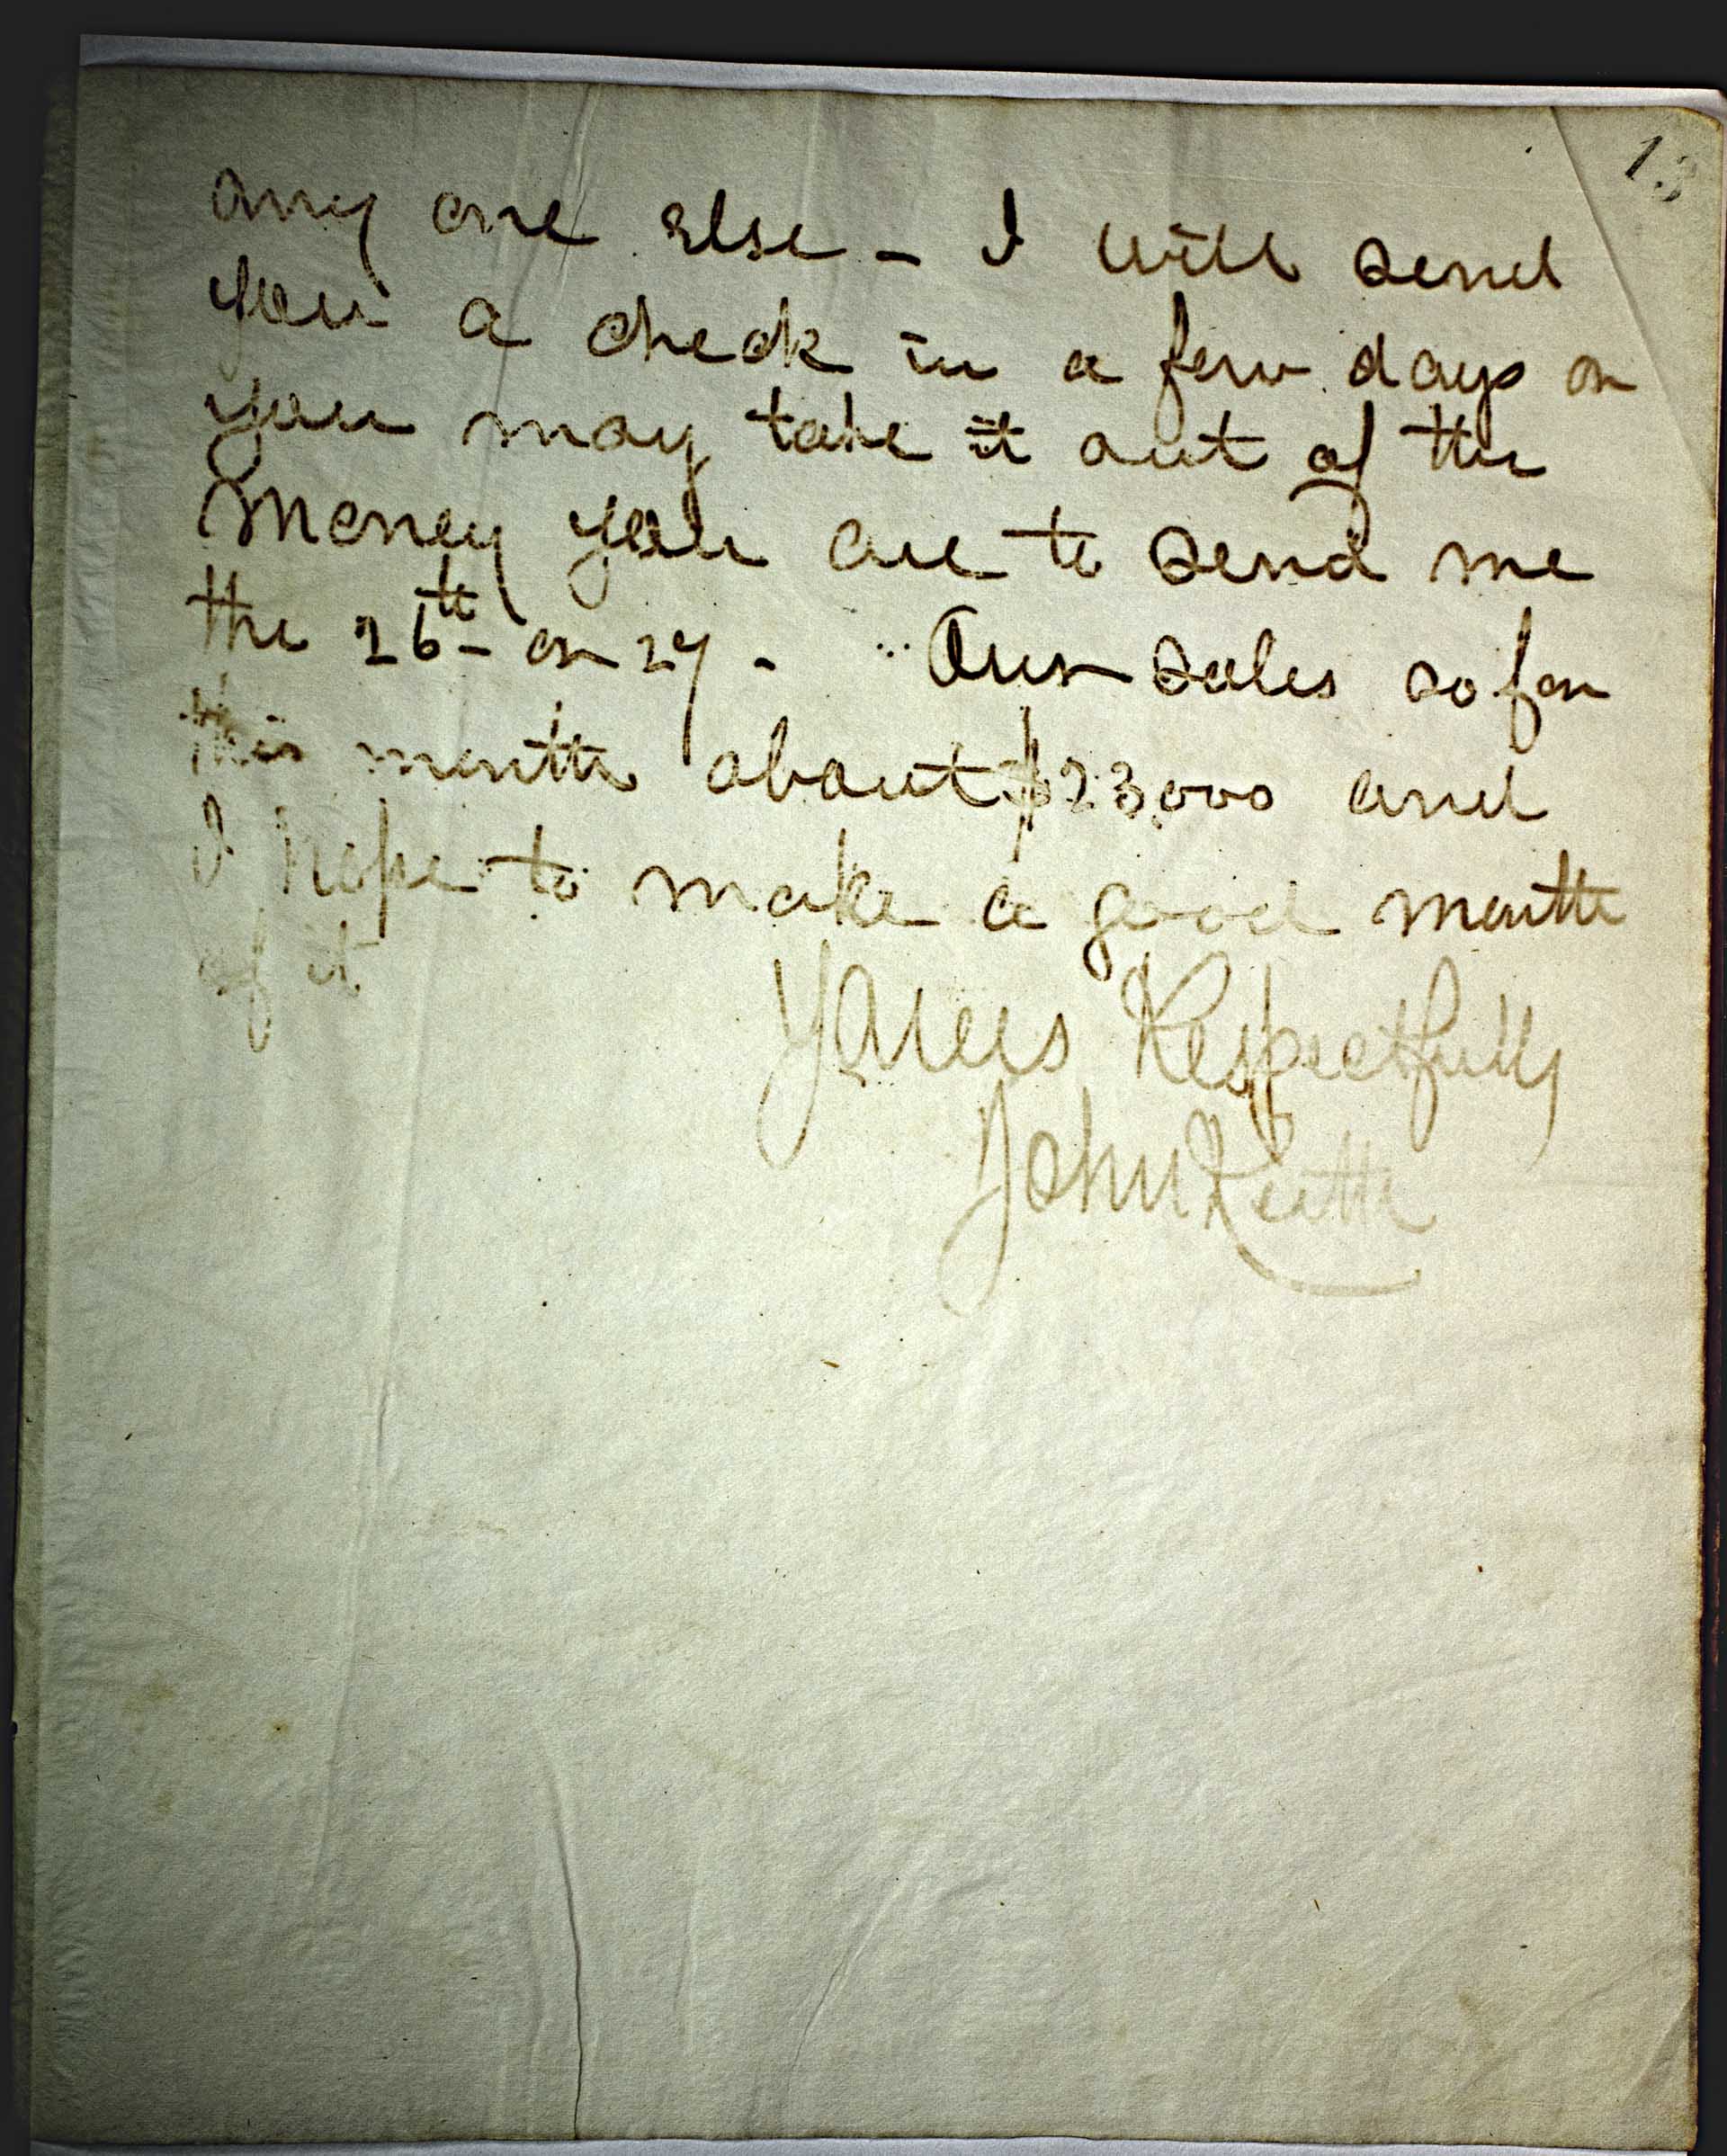 13
any one else - I will send
you a check in a few days or
you may take it out of the
money you are to send me
the 26th - or 27 - Our sales so far
this month about $23,000 and
I hope to make a good month
of it
Yours Respectfully
John Keith